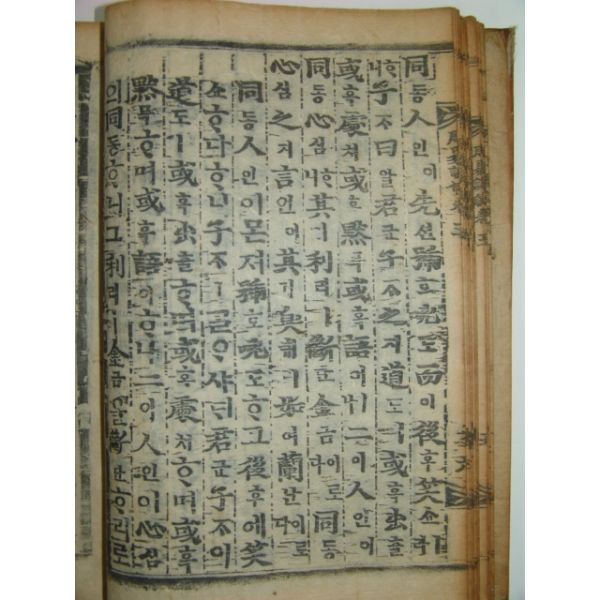 同동人인이先션號호咷도而이後후笑쇼ㅣ라
ᄒᆞ니子ᄌᆞㅣ曰왈君군子ᄌᆞ之지道도ㅣ或혹出츌
或혹處쳐或혹黙믁或혹語어ㅣ나二이人인이
同동心심ᄒᆞ니其기利리ㅣ斷단金금이로다同동
心심之지言언이其기臭ㅣ如여蘭난이로다
同동人인이몬져號호咷도ᄒᆞ고後후에笑
쇼ᄒᆞ다ᄒᆞ니子ᄌᆞㅣᄀᆞᆯᄋᆞ샤ᄃᆡ君군子ᄌᆞ의
道도ㅣ或혹出츌ᄒᆞ며或혹處쳐ᄒᆞ며或혹
黙믁ᄒᆞ며或혹語어ᄒᆞ나二이人인이心심
의同동ᄒᆞ니그利리ㅣ金금을斷단ᄒᆞ리로